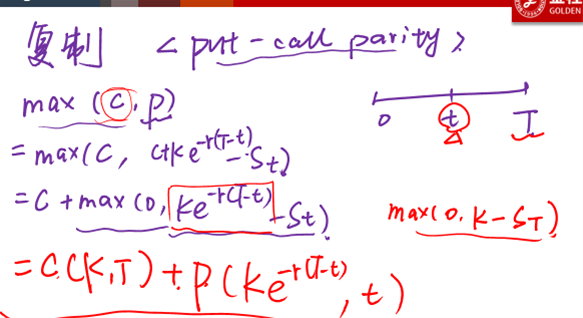 复制 <put-call parity>
max (C, P)
0 t T
= max(C, C+Ke^{-r(T-t)}-St)
= C + max(0, Ke^{-r(T-t)}-St)
max(0, K-ST)
= C(K,T) + P(Ke^{-r(T-t)}, t)
GOLDEN